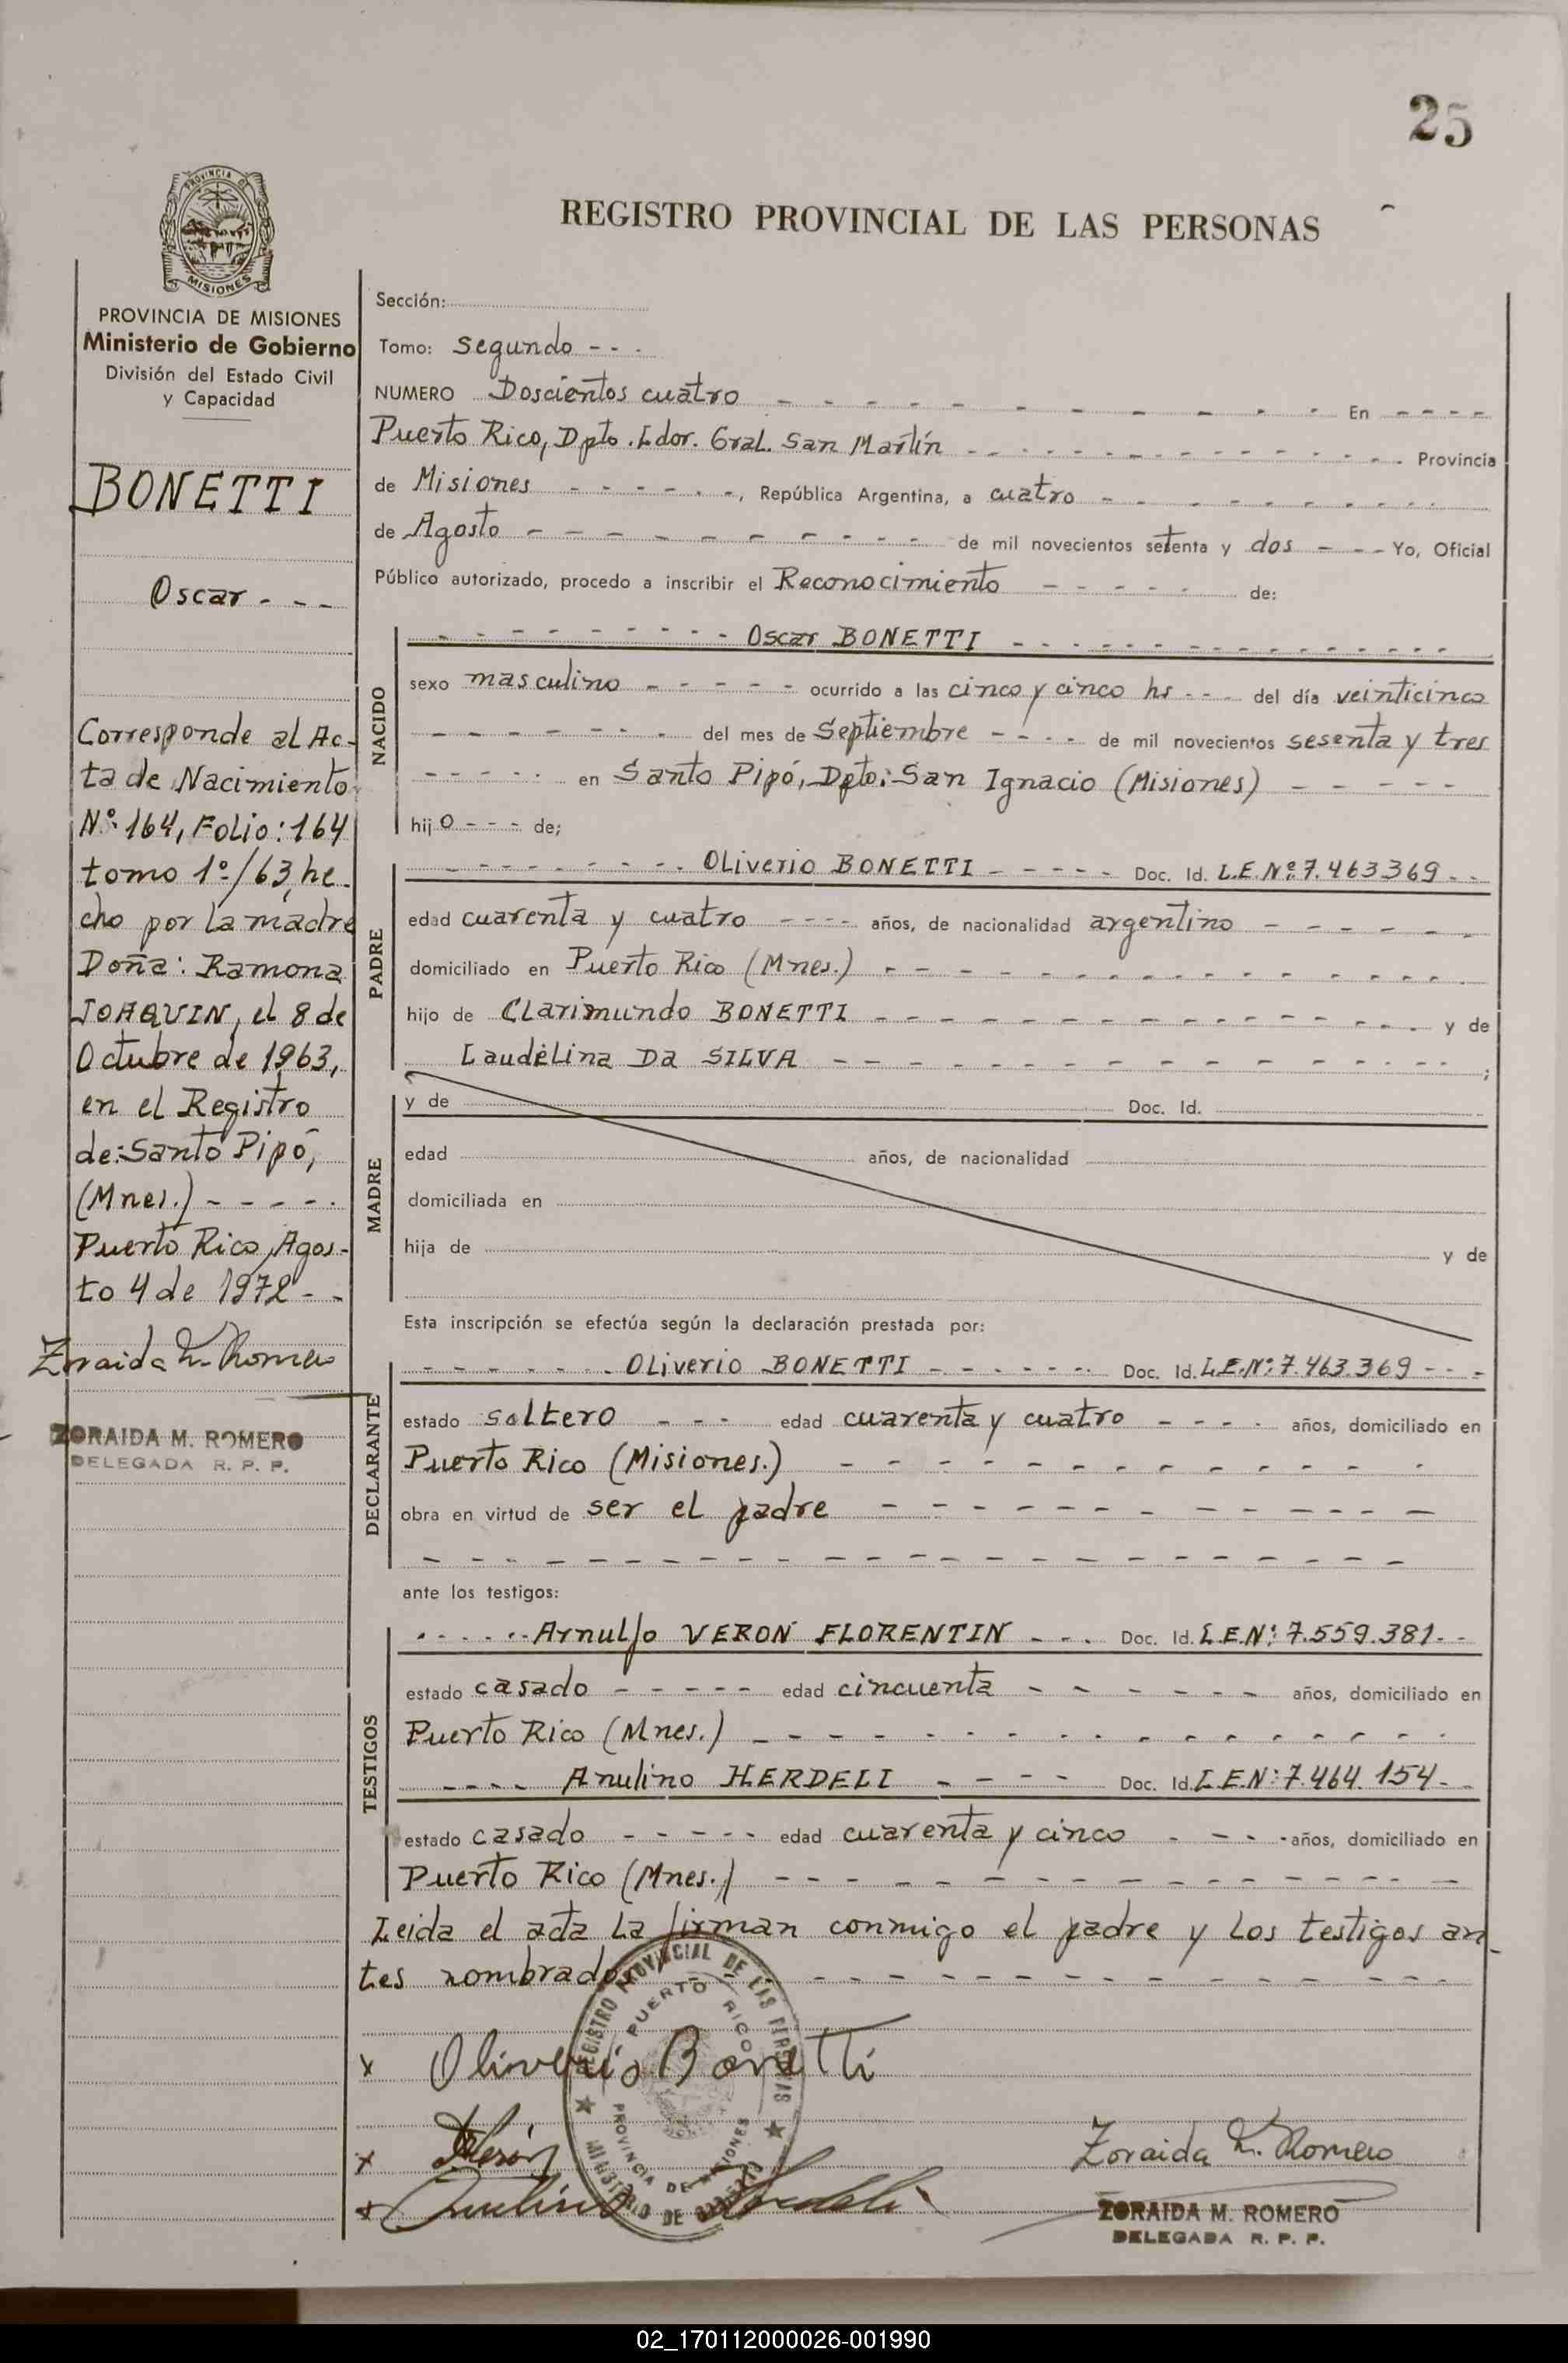 25
PROVINCIA DE
MISIONES
REGISTRO PROVINCIAL DE LAS PERSONAS
PROVINCIA DE MISIONES
Ministerio de Gobierno
División del Estado Civil
y Capacidad
BONETTI
Oscar - - -
Corresponde al Ac-
ta de Nacimiento
Nº 164, Folio: 164
tomo 1º/63, he-
cho por la madre
Doña: Ramona
JOAQUIN, el 8 de
Octubre de 1963,
en el Registro
de: Santo Pipó,
(Mnes.) - - - - -
Puerto Rico, Agos-
to 4 de 1972 - -
Zoraida M. Romero
ZORAIDA M. ROMERO
DELEGADA R. P. P.
Sección:
Tomo: Segundo - - -
NUMERO Doscientos cuatro - - - En - - - -
Puerto Rico, Dpto. Ldor. Gral. San Martín - - - Provincia
de Misiones - - -, República Argentina, a cuatro - - -
de Agosto - - - de mil novecientos setenta y dos - - - Yo, Oficial
Público autorizado, procedo a inscribir el Reconocimiento - - - de:
NACIDO
- - - Oscar BONETTI - - -
sexo masculino - - - ocurrido a las cinco y cinco hs - - - del día veinticinco
- - - del mes de Septiembre - - - de mil novecientos sesenta y tres
- - - en Santo Pipó, Dpto: San Ignacio (Misiones) - - -
hijo - - - de;
PADRE
- - - Oliverio BONETTI - - - Doc. Id. L.E.Nº:7.463369 - -
edad cuarenta y cuatro - - - años, de nacionalidad argentino - - -
domiciliado en Puerto Rico (Mnes.) - - -
hijo de Clarimundo BONETTI - - - y de
Laudelina Da SILVA - - - ;
MADRE
y de Doc. Id.
edad años, de nacionalidad
domiciliada en
hija de y de
Esta inscripción se efectúa según la declaración prestada por:
DECLARANTE
- - - Oliverio BONETTI - - - Doc. Id. L.E.Nº:7.463.369 - - -
estado soltero - - - edad cuarenta y cuatro - - - años, domiciliado en
Puerto Rico (Misiones.) - - -
obra en virtud de ser el padre - - -
- - -
ante los testigos:
TESTIGOS
- - - Arnulfo VERON FLORENTIN - - - Doc. Id. L.E.Nº: 7.559.381 - -
estado casado - - - edad cincuenta - - - años, domiciliado en
Puerto Rico (Mnes.) - - -
- - - Anulino HERDELI - - - Doc. Id. L.E.Nº: 7.464.154 - -
estado casado - - - edad cuarenta y cinco - - - años, domiciliado en
Puerto Rico (Mnes.) - - -
Leida el acta la firman conmigo el padre y los testigos an-
tes nombrados - - -
REGISTRO PROVINCIAL DE LAS PERSONAS
PUERTO RICO
PROVINCIA DE MISIONES
MINISTERIO DE GOBIERNO
x Oliverio Bonetti
x
x
Zoraida M. Romero
ZORAIDA M. ROMERO
DELEGADA R. P. P.
02_170112000026-001990